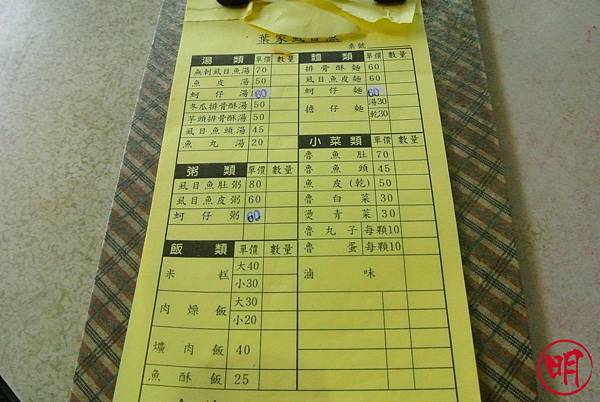 葉家虱目魚
桌號
湯類 單價 數量
無刺虱目魚湯 70
魚皮湯 50
蚵仔湯 60
冬瓜排骨酥湯 50
芋頭排骨酥湯 50
虱目魚頭湯 45
魚丸湯 20
粥類 單價 數量
虱目魚肚粥 80
虱目魚皮粥 60
蚵仔粥 60
飯類 單價 數量
米糕 大40
小30
肉燥飯 大30
小20
爌肉飯 40
魚酥飯 25
麵類 單價 數量
排骨酥麵 60
虱目魚皮麵 60
蚵仔麵 60
擔仔麵 湯30
乾30
小菜類 單價 數量
魯魚肚 70
魯魚頭 45
魚皮(乾) 50
魯白菜 30
燙青菜 30
魯丸子 每顆10
魯蛋 每顆10
滷味
明